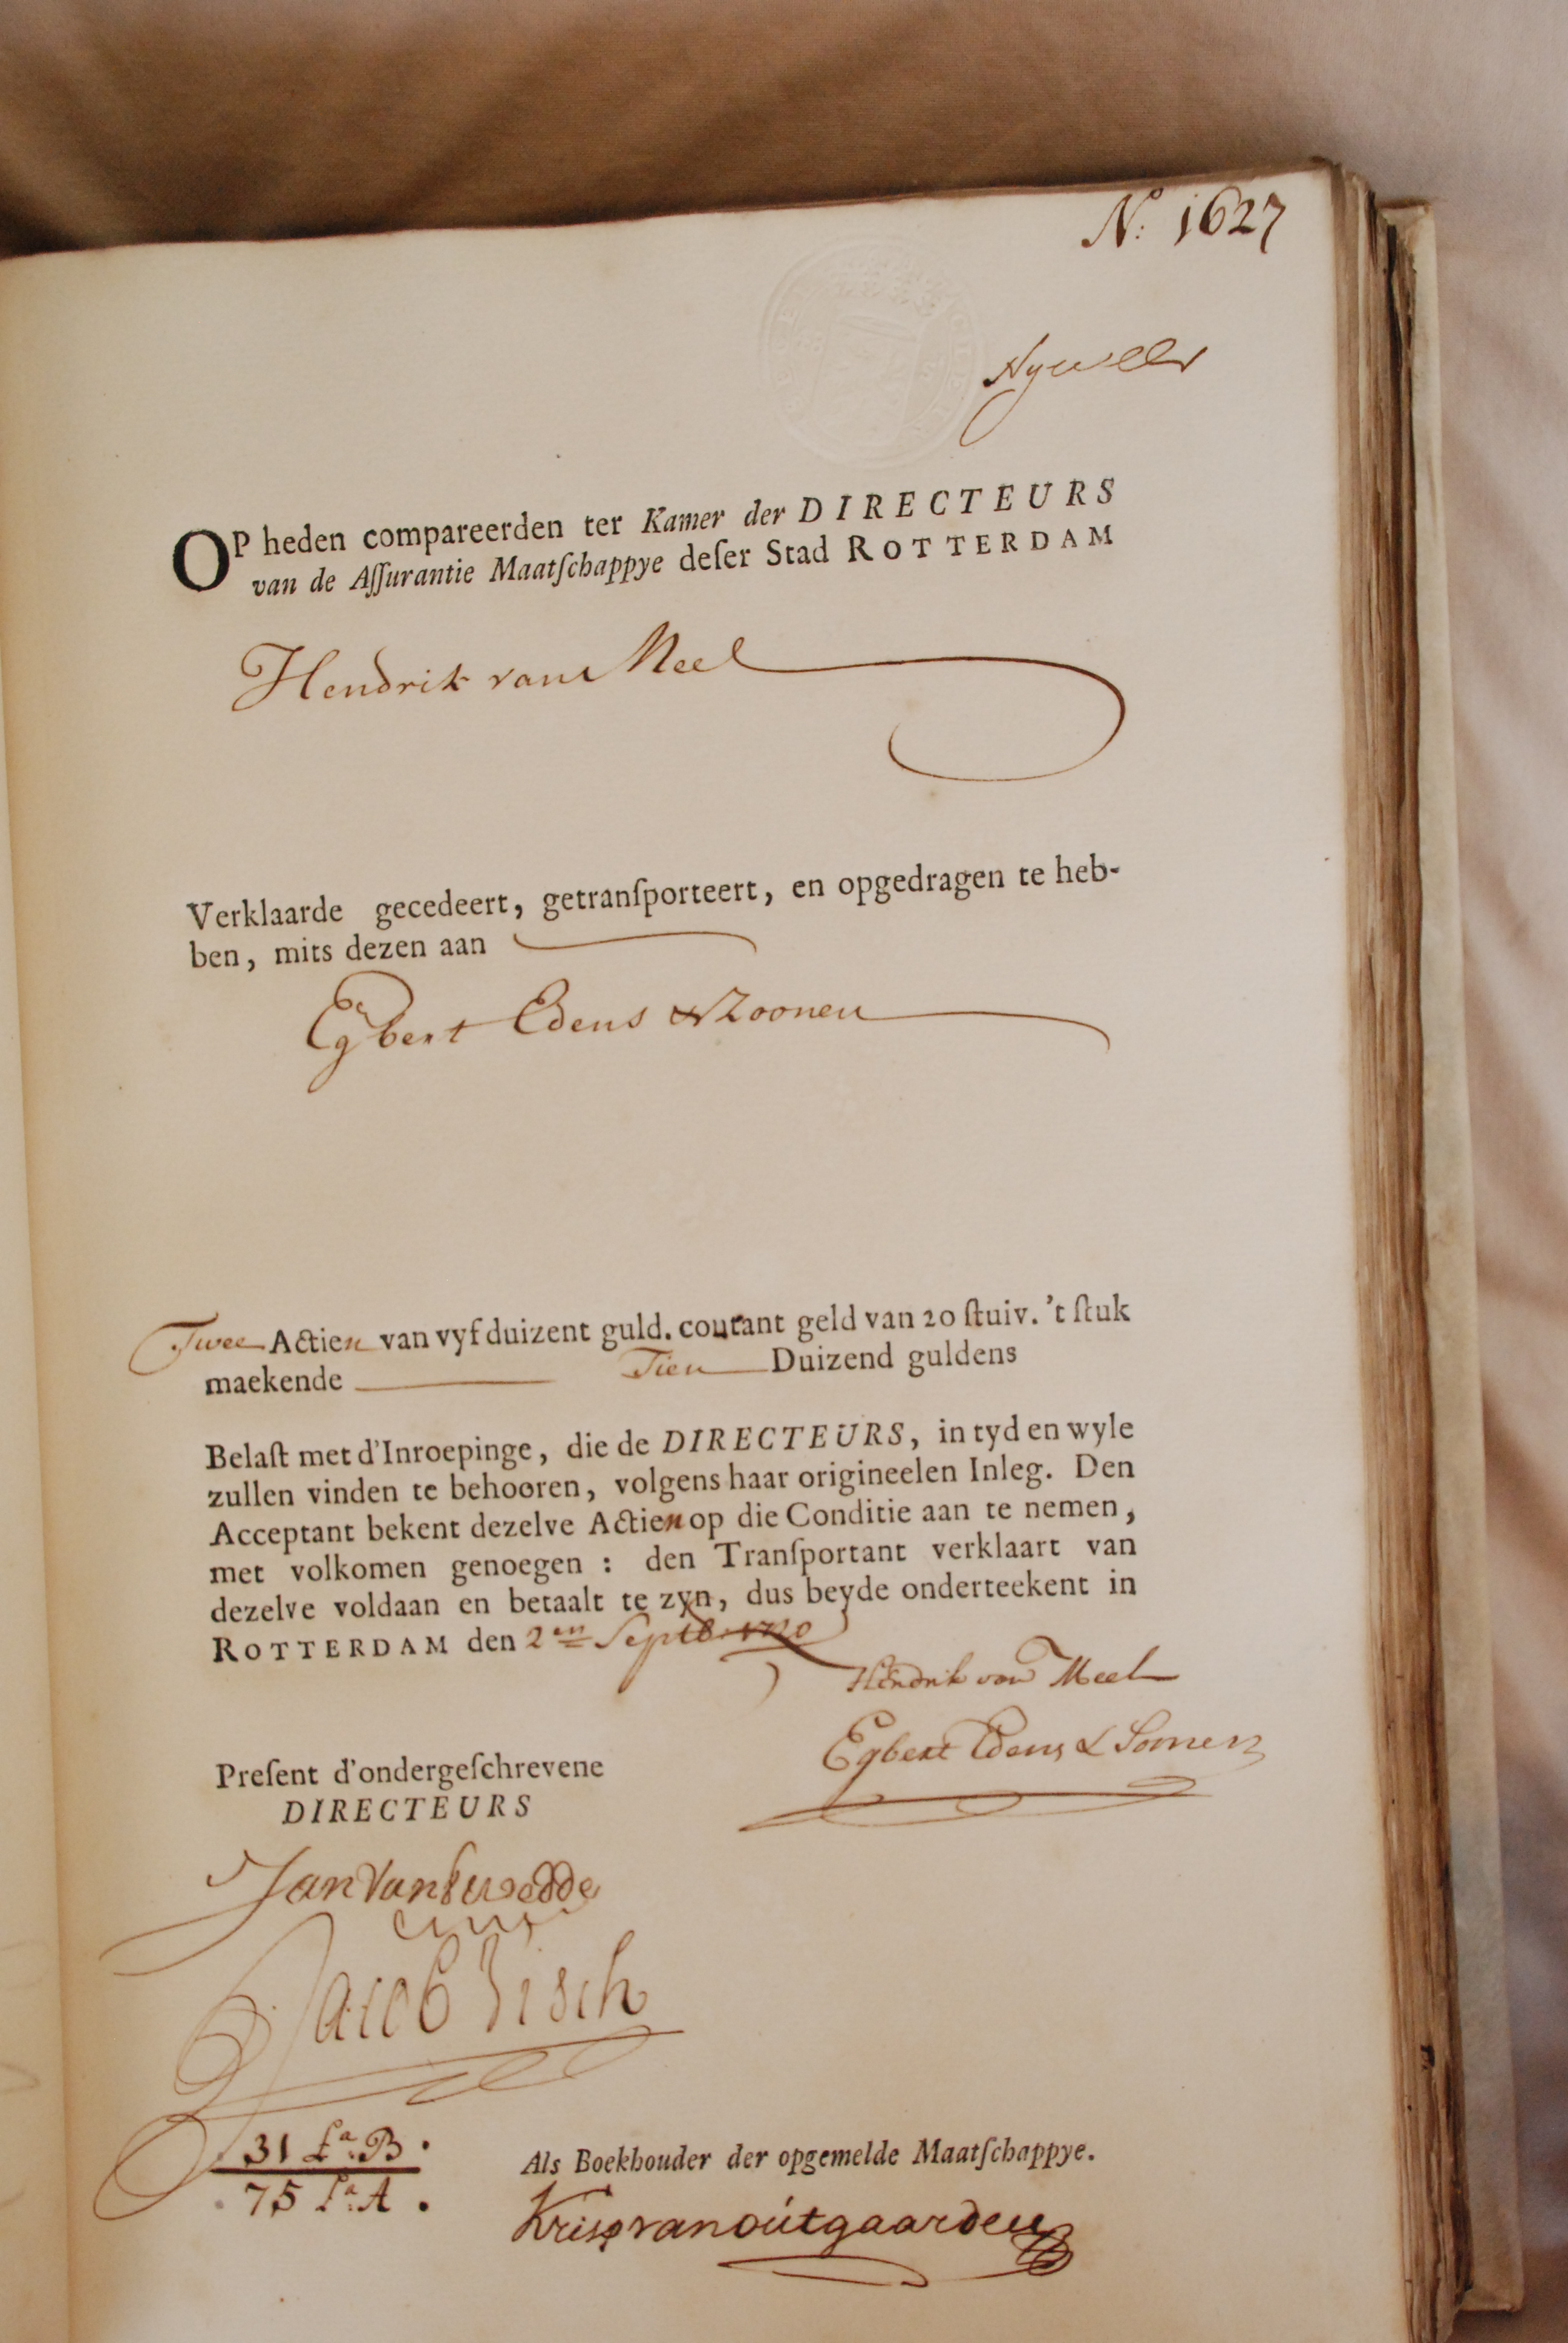 No: 1627
OP heden compareerden ter Kamer der DIRECTEURS
van de Aſſurantie Maatſchappye deſer Stad ROTTERDAM
Hendrik van Meel
Verklaarde gecedeert, getranſporteert, en opgedragen te heb-
ben, mits dezen aan
Egbert Edens & Zoonen
Twee Actien van vyf duizent guld. courant geld van 20 ſtuiv. 't ſtuk
maekende Tien Duizend guldens
Belaſt met d'Inroepinge, die de DIRECTEURS, in tyd en wyle
zullen vinden te behooren, volgens haar origineelen Inleg. Den
Acceptant bekent dezelve Actien op die Conditie aan te nemen,
met volkomen genoegen : den Tranſportant verklaart van
dezelve voldaan en betaalt te zyn, dus beyde onderteekent in
ROTTERDAM den 2en Septb. 1720
Hendrik van Meel
Egbert Edens & Soonen
Preſent d'ondergeſchrevene
DIRECTEURS
Jan Van
Jacob Visch
31 La. B.
75 La. A.
Als Boekhouder der opgemelde Maatſchappye.
Krisp van outgaarden